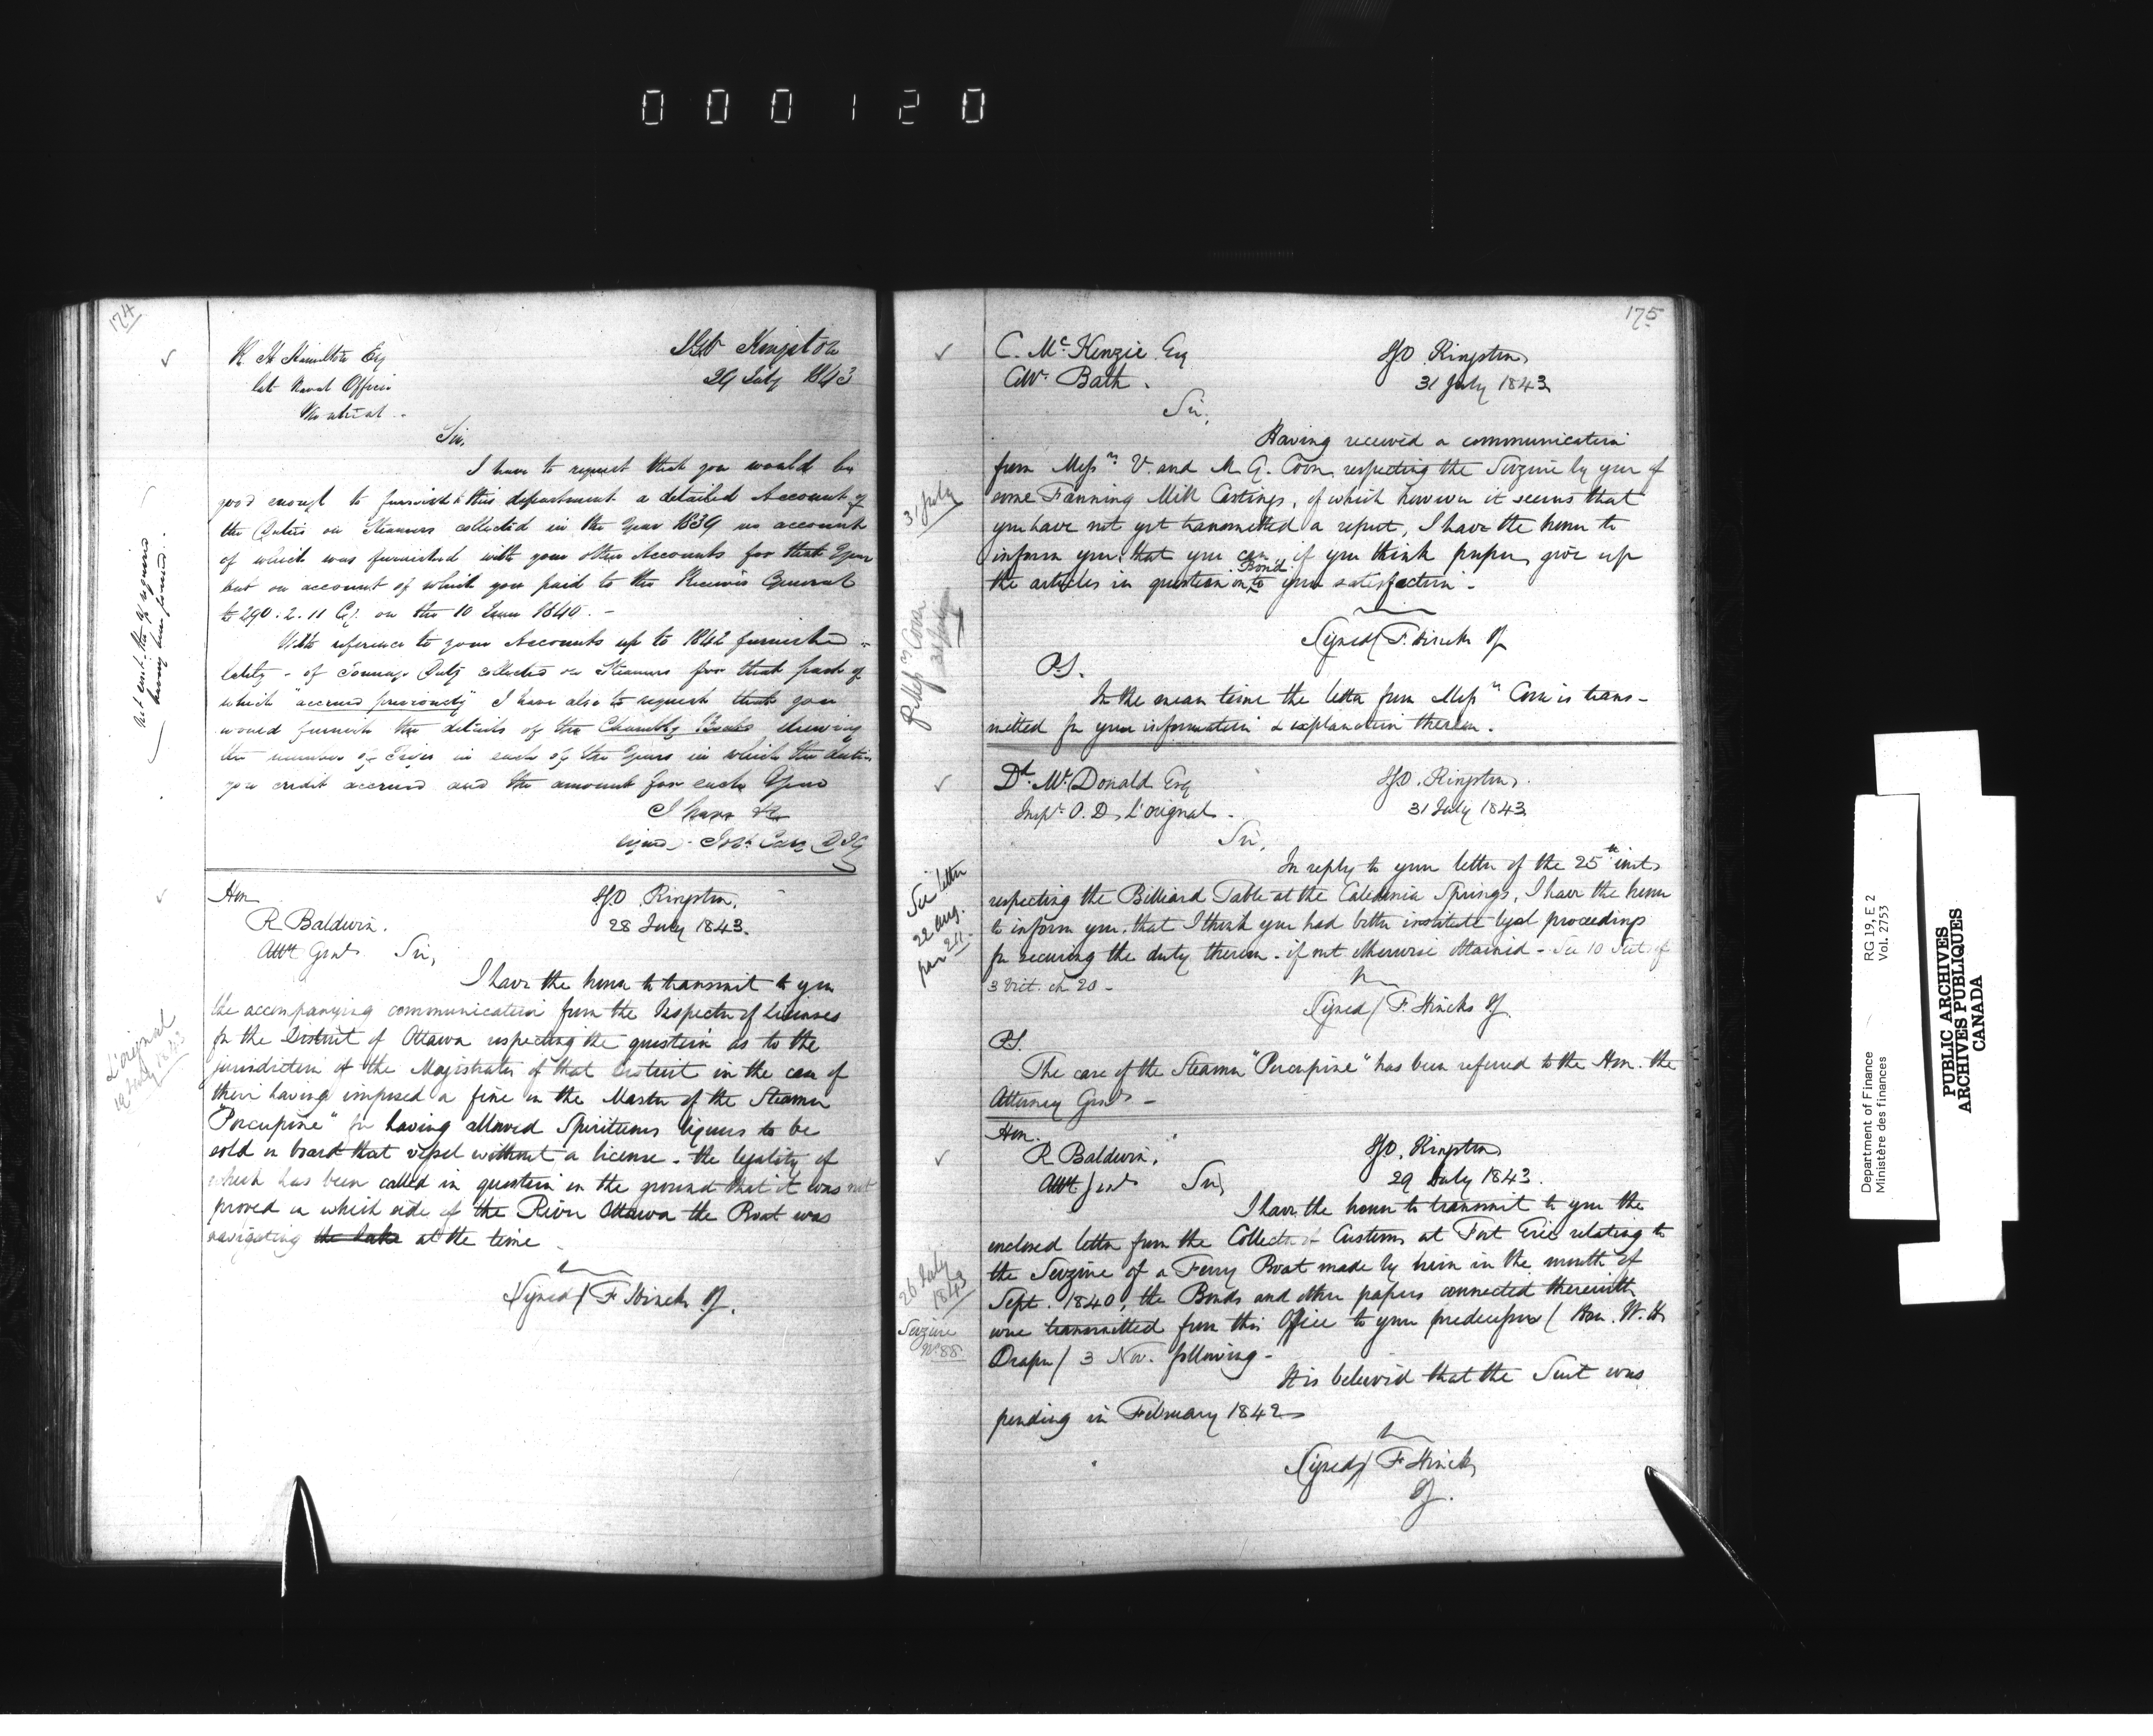 000120
174
R H Hamilton Esq
late Naval Officer
Montreal
IGO Kingston
29 July 1843
Sir,
I have to request that you would be
good enough to furnish to this department a detailed Account of
the Duties on Steamers collected in the Year 1839 no account
of which was furnished with your other Accounts for that Year
but on account of which you paid to the Receiver General
£290.2.11 Cy. on the 10 June 1840. -
With reference to your Accounts up to 1842 furnished
lately - of Tonnage Duty collected on Steamers for that part of
which "accrued previously" I have also to request that you
would furnish the details of the Chambly Boats shewing
the number of Trips in each of the Years in which the duties
you credit accrued and the amount for each Year
I have &c
signed - Jos. Cary D I G
having been found.
Hon
R Baldwin.
Atty Genl.
IGO Kingston.
28 July 1843.
Sir,
L'orignal
19 July 1843
I have the honor to transmit to you
the accompanying communication from the Inspector of licenses
for the District of Ottawa respecting the question as to the
jurisdiction of the Magistrates of that District in the case of
their having imposed a fine on the Master of the Steamer
"Porcupine" for having allowed Spirituous liquors to be
sold on board that vessel without a license - the legality of
which has been called in question on the ground that it was not
proved on which side of the River Ottawa the Boat was
navigating the lake at the time
Signed / F Hincks IG.
175
C. McKenzie Esq
Collr. Bath.
IGO Kingston
31 July 1843
Sir,
31 July
Having received a communication
from Messrs V. and M. G. Coon respecting the Seizure by you of
some Fanning Mill Castings, of which however it seems that
you have not yet transmitted a report, I have the honor to
inform you that you can if you think proper, give up
the articles in question on Bond to your satisfaction -
Messrs Coon
31 July
Signed / F. Hincks IG
P.S.
In the mean time the letter from Messrs Coon is trans-
mitted for your information & explanation thereon.
Dd. McDonald Esq
Inspr. O. D. L'orignal.
IGO. Kingston
31 July 1843
Sir,
See letter
22 Aug.
page 211.
In reply to your letter of the 25th inst
respecting the Billiard Table at the Caledonia Springs, I have the honor
to inform you that I think you had better institute legal proceedings
for securing the duty thereon - if not otherwise obtained - See 10 Sect of
3 Vict. ch 20 -
Signed / F. Hincks IG.
P.S.
The case of the Steamer "Porcupine" has been referred to the Hon. the
Attorney Genl. -
Hon.
R. Baldwin.
Atty Genl
IGO. Kingston
29 July 1843.
Sir,
26 July
1843
Seizure
No 88
I have the honor to transmit to you the
enclosed letter from the Collector of Customs at Fort Erie relating to
the Seizure of a Ferry Boat made by him in the month of
Sept. 1840, the Bonds and other papers connected therewith
were transmitted from this Office to your predecessor / Hon. W. H
Draper / 3 Nov. following -
It is believed that the Suit was
pending in February 1842
Signed / F Hincks
IG.
Department of Finance
Ministère des finances
RG 19, E 2
Vol. 2753
PUBLIC ARCHIVES
ARCHIVES PUBLIQUES
CANADA